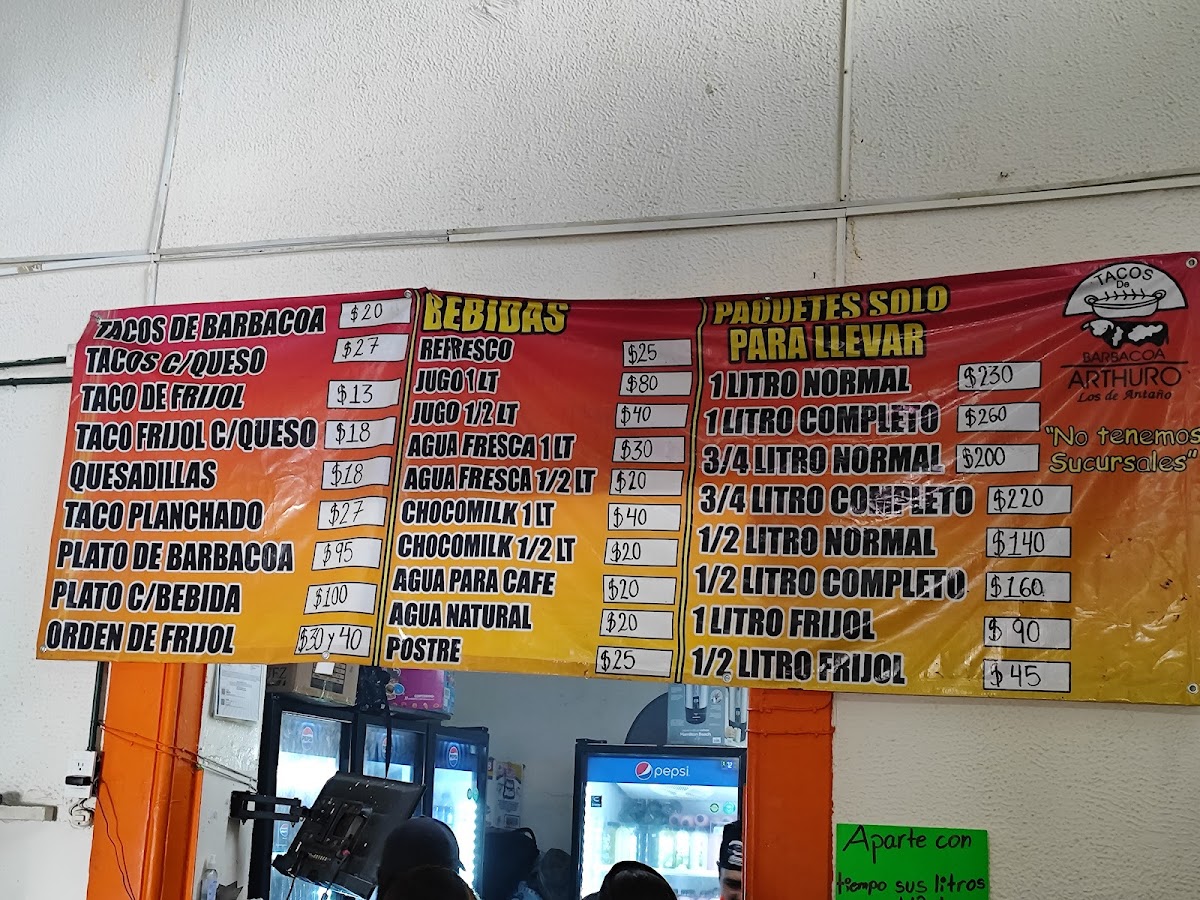 TACOS DE BARBACOA $20
TACOS C/QUESO $27
TACO DE FRIJOL $13
TACO FRIJOL C/QUESO $18
QUESADILLAS $18
TACO PLANCHADO $27
PLATO DE BARBACOA $95
PLATO C/BEBIDA $100
ORDEN DE FRIJOL $30 y 40
BEBIDAS
REFRESCO $25
JUGO 1 LT $80
JUGO 1/2 LT $40
AGUA FRESCA 1 LT $30
AGUA FRESCA 1/2 LT $20
CHOCOMILK 1 LT $40
CHOCOMILK 1/2 LT $20
AGUA PARA CAFE $20
AGUA NATURAL $20
POSTRE $25
PAQUETES SOLO
PARA LLEVAR
1 LITRO NORMAL $230
1 LITRO COMPLETO $260
3/4 LITRO NORMAL $200
3/4 LITRO COMPLETO $220
1/2 LITRO NORMAL $140
1/2 LITRO COMPLETO $160
1 LITRO FRIJOL $90
1/2 LITRO FRIJOL $45
TACOS
De
BARBACOA
ARTHURO
Los de Antaño
"No tenemos
Sucursales"
pepsi
Aparte con
tiempo sus litros